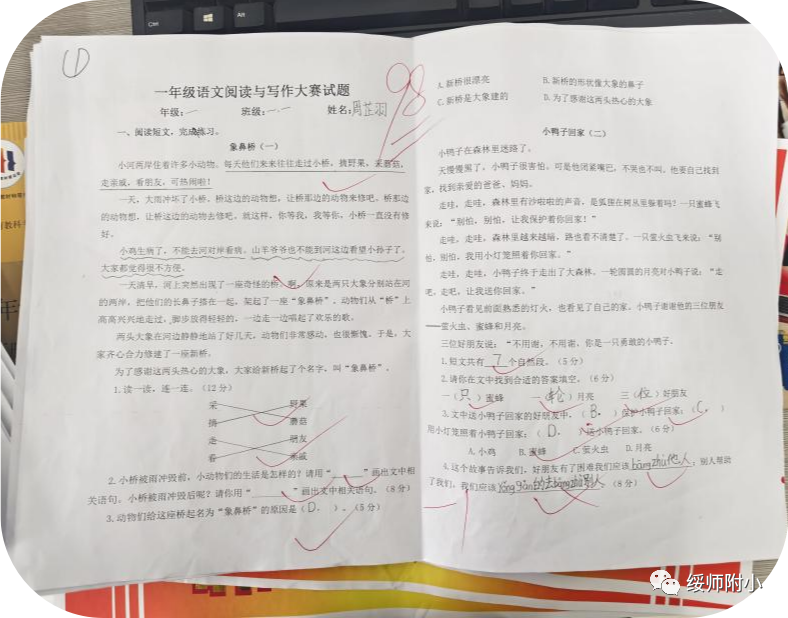 ①
一年级语文阅读与写作大赛试题
98
年级:一 班级:一.一 姓名:周芷羽
一、阅读短文,完成练习。
象鼻桥(一)
小河两岸住着许多小动物。每天他们来来往往走过小桥,摘野果,采蘑菇,
走亲戚,看朋友,可热闹啦!
一天,大雨冲坏了小桥。桥这边的动物想,让桥那边的动物来修吧。桥那边
的动物想,让桥这边的动物去修吧。就这样,你等我,我等你,小桥一直没有修
好。
小鸡生病了,不能去河对岸看病。山羊爷爷也不能到河这边看望小孙子了。
大家都觉得很不方便。
一天清早,河上突然出现了一座奇怪的桥。啊,原来是两只大象分别站在河
的两岸,把他们的长鼻子搭在一起,架起了一座“象鼻桥”。动物们从“桥”上
高高兴兴地走过,脚步放得轻轻的,一边走一边唱起了欢乐的歌。
两头大象在河边静静地站了好几天,动物们非常感动,也很惭愧。于是,大
家齐心合力修建了一座新桥。
为了感谢这两头热心的大象,大家给新桥起了个名字,叫“象鼻桥”。
1.读一读,连一连。(12分)
采 野果
摘 蘑菇
走 朋友
看 亲戚
2.小桥被雨冲毁前,小动物们的生活是怎样的?请用“ ”画出文中相
关语句。小桥被雨冲毁后呢?请你用“ ”画出文中相关语句。(8分)
3.动物们给这座桥起名为“象鼻桥”的原因是(D. )。(5分)
A.新桥很漂亮 B.新桥的形状像大象的鼻子
C.新桥是大象建的 D.为了感谢这两头热心的大象
小鸭子回家(二)
小鸭子在森林里迷路了。
天慢慢黑了,小鸭子很害怕。可是他闭紧嘴巴,不哭也不叫。他要自己找到
家,找到亲爱的爸爸、妈妈。
走哇,走哇,森林里有沙啦啦的声音,是狐狸在树丛里躲着吗?一只蜜蜂飞
来说:“别怕,别怕,让我保护着你回家!”
走哇,走哇,森林里越来越暗,路也看不清楚了。一只萤火虫飞来说:“别
怕,别怕,我用小灯笼照着你回家。”
走哇,走哇,小鸭子终于走出了大森林。一轮圆圆的月亮对小鸭子说:“走
吧,走吧,让我送你回家。”
小鸭子看见前面熟悉的灯火,也看见了自己的家。小鸭子谢谢他的三位朋友
——萤火虫、蜜蜂和月亮。
三位好朋友说:“不用谢,不用谢,你是一只勇敢的小鸭子。
1.短文共有 7 个自然段。(5分)
2.请你在文中找到合适的答案填空。(6分)
一(只)蜜蜂 一(轮)月亮 三(位)好朋友
3.文中送小鸭子回家的好朋友中,(B. )保护小鸭子回家;(C. )
用小灯笼照着小鸭子回家;(D. )送小鸭子回家。(6分)
A.小鸡 B.蜜蜂 C.萤火虫 D.月亮
4.这个故事告诉我们,好朋友有了困难我们应该bāngzhù他人;别人帮助
了我们,我们应该yǒnggǎn的去bāngzhù别人。(8分)
-1
绥师附小